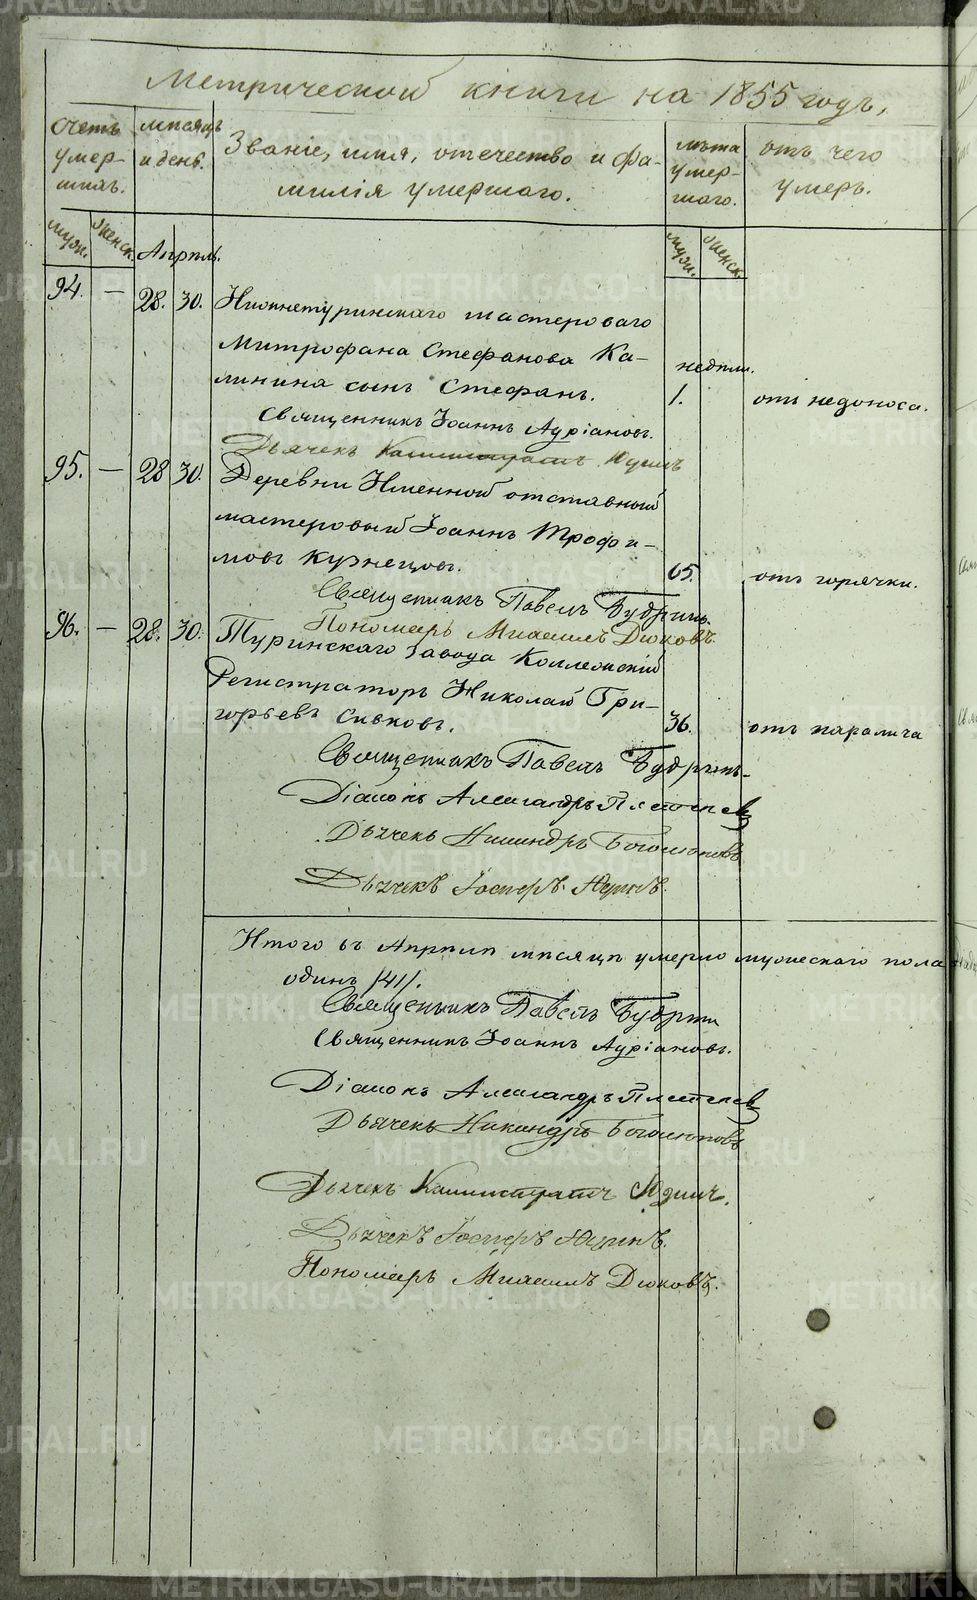 Метрической книги на 1855 годъ,
Счетъ умер-шихъ.
мѣсяцъ и день.
Званіе, имя, отечество и фа-
милія умершаго.
лѣта умер-шаго.
отъ чего умеръ.
муж. женск. Апрѣль. муж. женск.
94. — 28. 30. Нижнетуринскаго мастероваго
Митрофана Стефанова Ка- недѣли.
линина сынъ Стефанъ. 1. отъ недоноса.
Священникъ Іоаннъ Адріановъ.
Дьячекъ Каллистратъ Юдинъ
95. — 28 30. Деревни Именной отставный
мастеровый Іоаннъ Трофи-
мовъ Кузнецовъ. 65. отъ горячки.
Священникъ Павелъ Бубринъ.
Пономарь Михаилъ Дюковъ.
96. — 28. 30. Туринскаго Завода Коллежскій
Регистраторъ Николай Гри-
горьевъ Сивковъ. 36. отъ паралича
Священникъ Павелъ Бубринъ
Діаконъ Александръ
Дьячекъ Никандръ Боголюповъ
Дьячекъ Іосифъ
Итого въ Апрѣлѣ мѣсяцѣ умерло мужескаго пола
одинъ /41/.
Священникъ Павелъ Бубринъ
Священникъ Іоаннъ Адріановъ.
Діаконъ Александръ
Дьячекъ Никандръ Боголюповъ
Дьячекъ Каллистратъ Юдинъ.
Дьячекъ Іосифъ
Пономарь Михаилъ Дюковъ.
METRIKI.GASO-URAL.RU